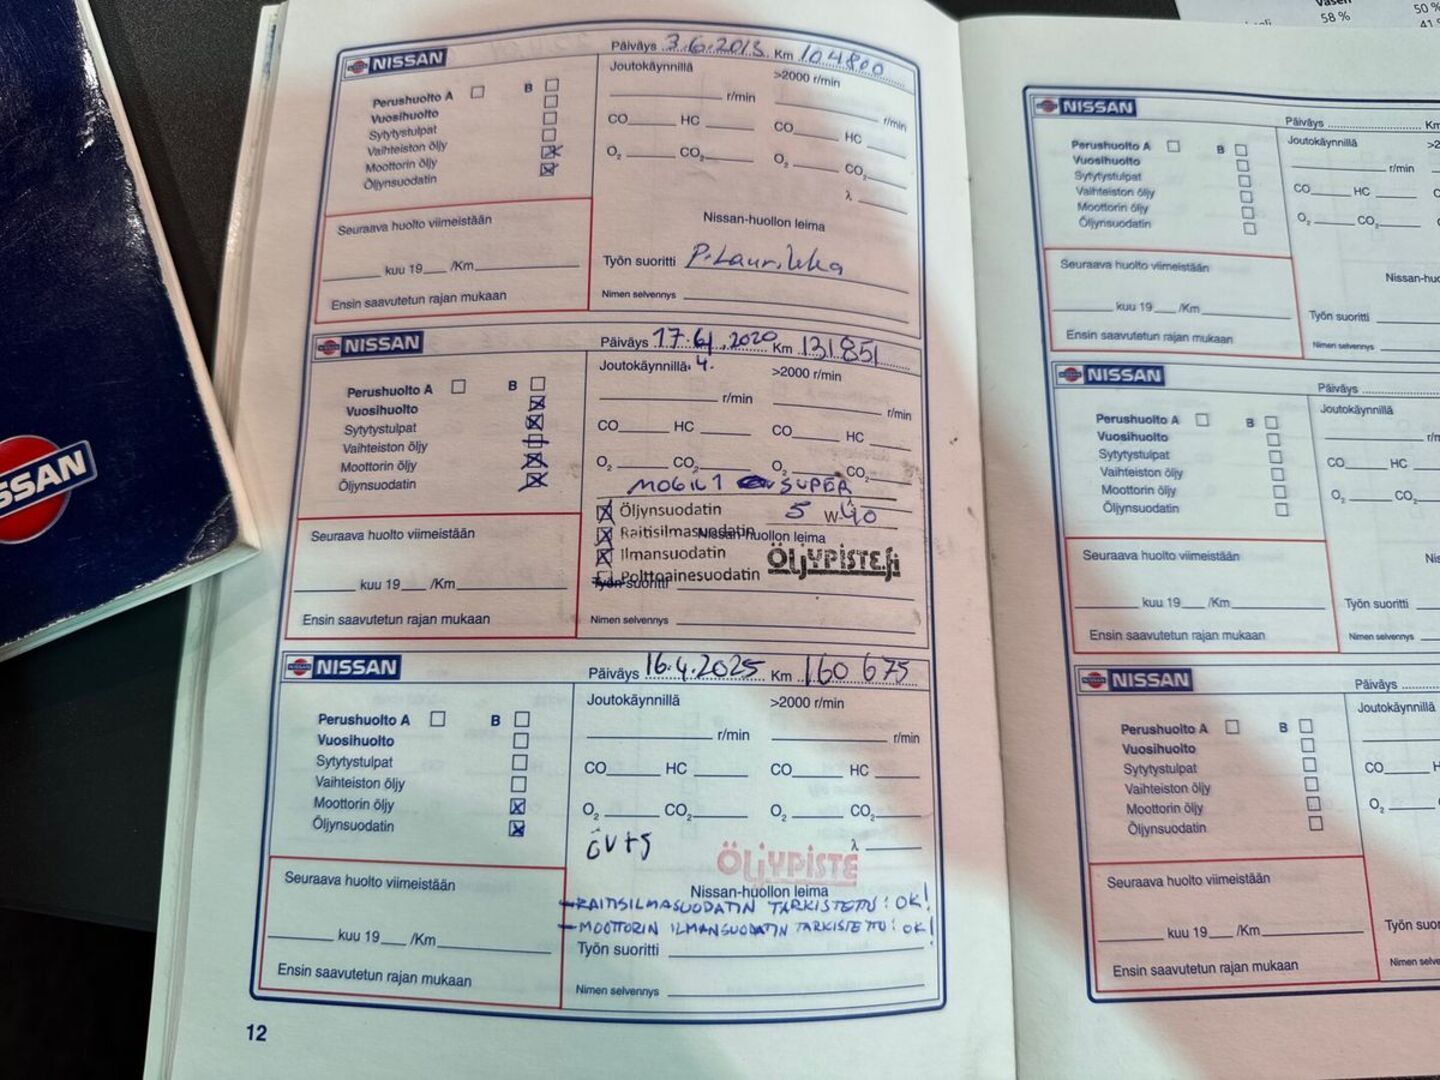 NISSAN
Päiväys 3.6.2013 Km 104800
Perushuolto A B
Vuosihuolto
Sytytystulpat
Vaihteiston öljy
Moottorin öljy
Öljynsuodatin
Joutokäynnillä >2000 r/min
r/min r/min
CO HC CO HC
O2 CO2 O2 CO2
λ
Nissan-huollon leima
Seuraava huolto viimeistään
kuu 19 /Km
Ensin saavutetun rajan mukaan
Työn suoritti P. Laurikka
Nimen selvennys
NISSAN
Päiväys 17.6.2020 Km 131851
Perushuolto A B
Vuosihuolto
Sytytystulpat
Vaihteiston öljy
Moottorin öljy
Öljynsuodatin
Joutokäynnillä 4. >2000 r/min
r/min r/min
CO HC CO HC
O2 CO2 O2 CO2
MOBIL 1 SUPER
Öljynsuodatin 5 W 40
Raitisilmasuodatin
Nissan-huollon leima
Ilmansuodatin
Polttoainesuodatin
ÖLJYPISTE.fi
Työn suoritti
Nimen selvennys
Seuraava huolto viimeistään
kuu 19 /Km
Ensin saavutetun rajan mukaan
NISSAN
Päiväys 16.4.2025 Km 160 675
Perushuolto A B
Vuosihuolto
Sytytystulpat
Vaihteiston öljy
Moottorin öljy
Öljynsuodatin
Joutokäynnillä >2000 r/min
r/min r/min
CO HC CO HC
O2 CO2 O2 CO2
ÖV+S λ
ÖLJYPISTE
Nissan-huollon leima
- RAITISILMASUODATIN TARKISTETTU: OK!
- MOOTTORIN ILMANSUODATIN TARKISTETTU: OK!
Työn suoritti
Nimen selvennys
Seuraava huolto viimeistään
kuu 19 /Km
Ensin saavutetun rajan mukaan
12
NISSAN
Päiväys Km
Perushuolto A B
Vuosihuolto
Sytytystulpat
Vaihteiston öljy
Moottorin öljy
Öljynsuodatin
Joutokäynnillä
r/min
CO HC
O2 CO2
Seuraava huolto viimeistään
kuu 19 /Km
Ensin saavutetun rajan mukaan
Työn suoritti
Nimen selvennys
NISSAN
Päiväys
Perushuolto A B
Vuosihuolto
Sytytystulpat
Vaihteiston öljy
Moottorin öljy
Öljynsuodatin
Joutokäynnillä
CO HC
O2 CO2
Seuraava huolto viimeistään
kuu 19 /Km
Ensin saavutetun rajan mukaan
Työn suoritti
Nimen selvennys
NISSAN
Päiväys
Perushuolto A B
Vuosihuolto
Sytytystulpat
Vaihteiston öljy
Moottorin öljy
Öljynsuodatin
Joutokäynnillä
CO
O2
Seuraava huolto viimeistään
kuu 19 /Km
Ensin saavutetun rajan mukaan
Nimen selvennys
Vasen
58 %
50 %